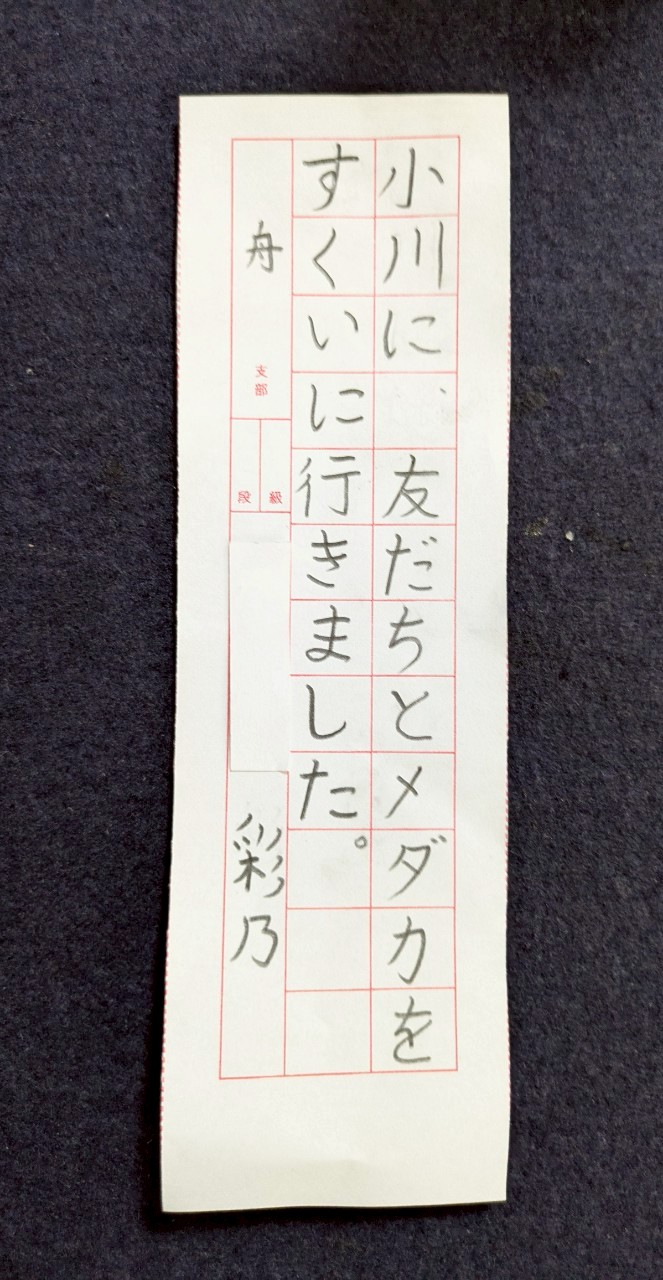 小川に、友だちとメダカを
すくいに行きました。
舟 支部
級
段
彩乃